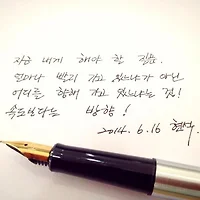 지금 내게 해야 할 질문.
얼마나 빨리 가고 있느냐가 아닌
어디를 향해 가고 있느냐는 것!
속도보다는 방향!
2014. 6. 16